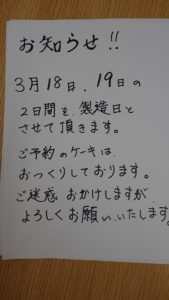 お知らせ!!
3月18日、19日の
2日間を、製造日と
させて頂きます。
ご予約のケーキは、
おつくりしております。
ご迷惑おかけしますが
よろしくお願いいたします。